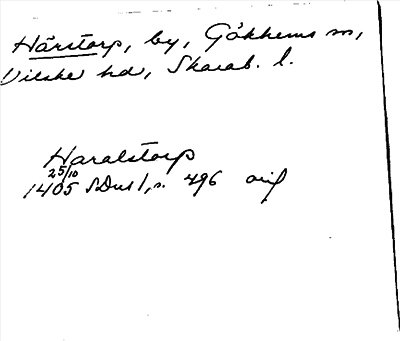 Hårstorp, by, Gökhems sn,
Vilske hd, Skarab. l.
Haralstorp
25/10
1405 SDns 1, s. 496 orig